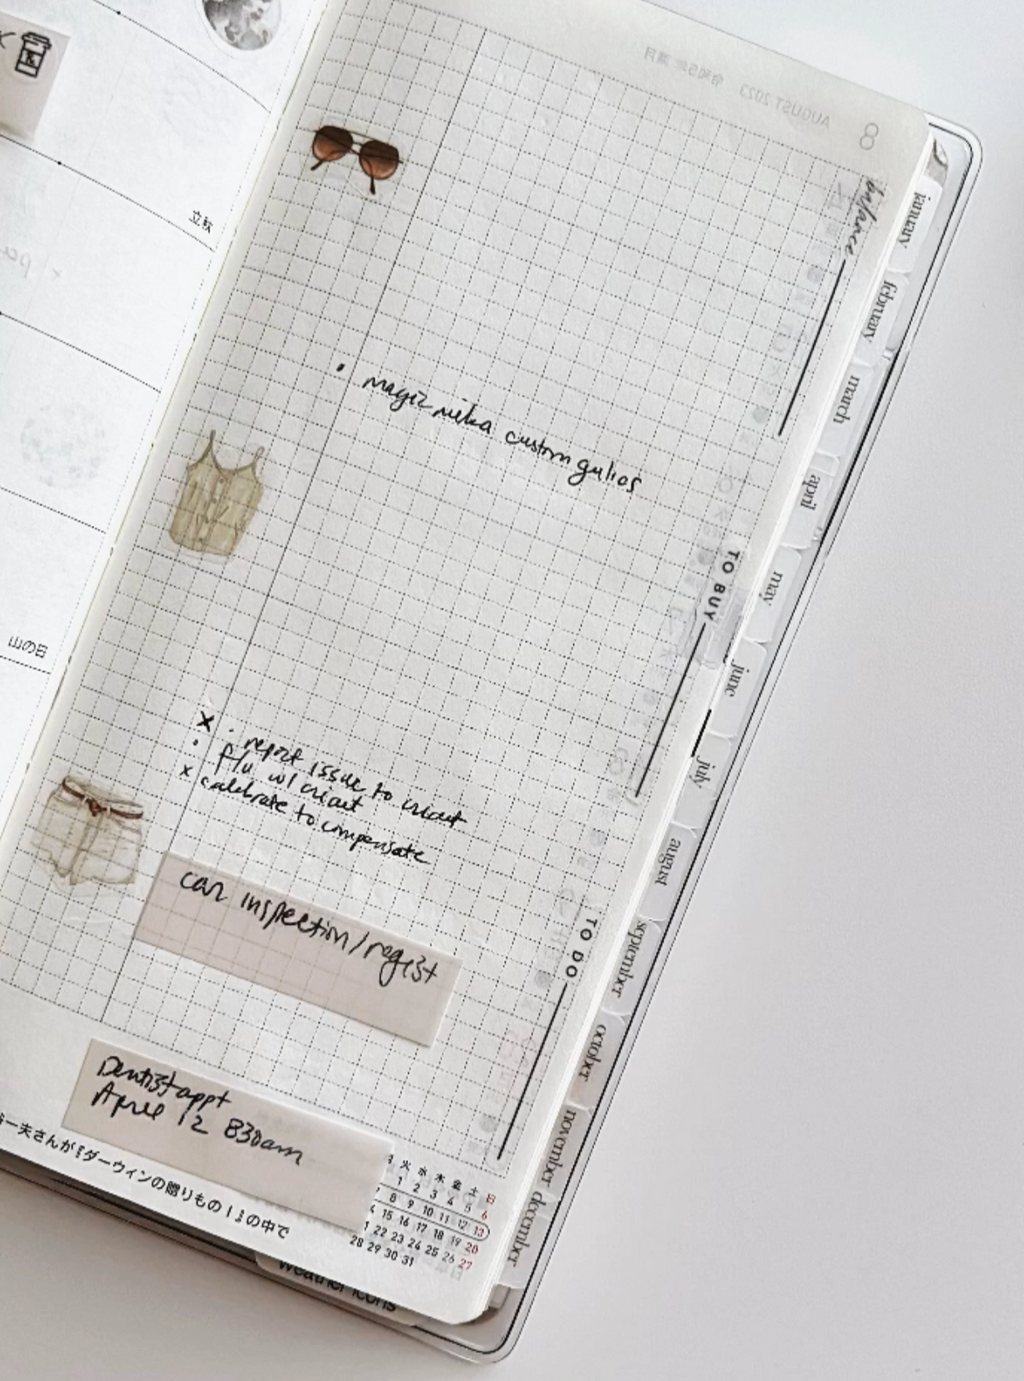 立秋
山の日
AUGUST 2023
8
balance
TO BUY
TO DO
• magiz
custom
× · report issue to cricut
· f/u w/ cricut
× calibrate to compensate
car inspection/regist
Dentist appt
April 12 830am
一夫さんが『ダーウィンの贈りものⅠ』の中で
火 水 木 金 土 日
1 2 3 4 5 6
8 9 10 11 12 13
15 16 17 18 19 20
22 23 24 25 26 27
28 29 30 31
january
february
march
april
may
june
july
august
september
october
november
december
weather icons